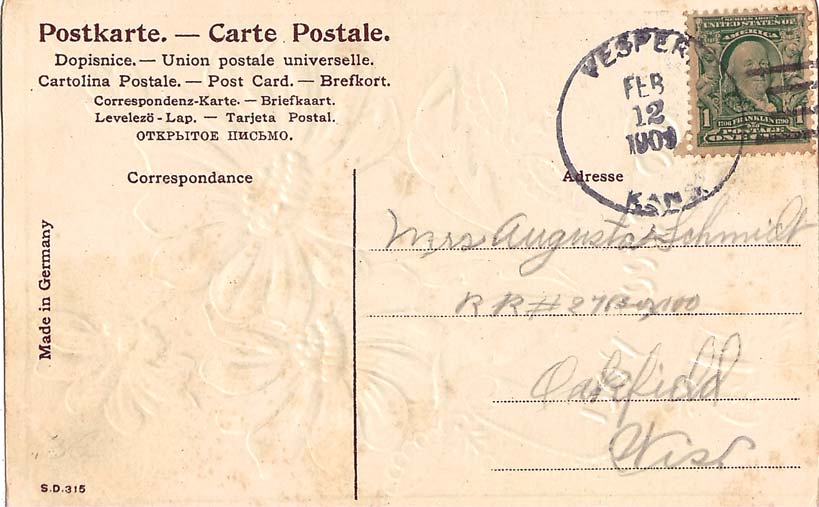 Postkarte. — Carte Postale.
Dopisnice. — Union postale universelle.
Cartolina Postale. — Post Card. — Brefkort.
Correspondenz-Karte. — Briefkaart.
Levelezö-Lap. — Tarjeta Postal.
ОТКРЫТОЕ ПИСЬМО.
Correspondance
Made in Germany
S.D.315
VESPER
FEB
12
1909
KANS.
SERIES 1902
UNITED STATES OF
AMERICA
1
1706 FRANKLIN 1790
POSTAGE
ONE
Adresse
Mrs Augusta Schmidt
RR#27 Box 100
Oakfield
Wis